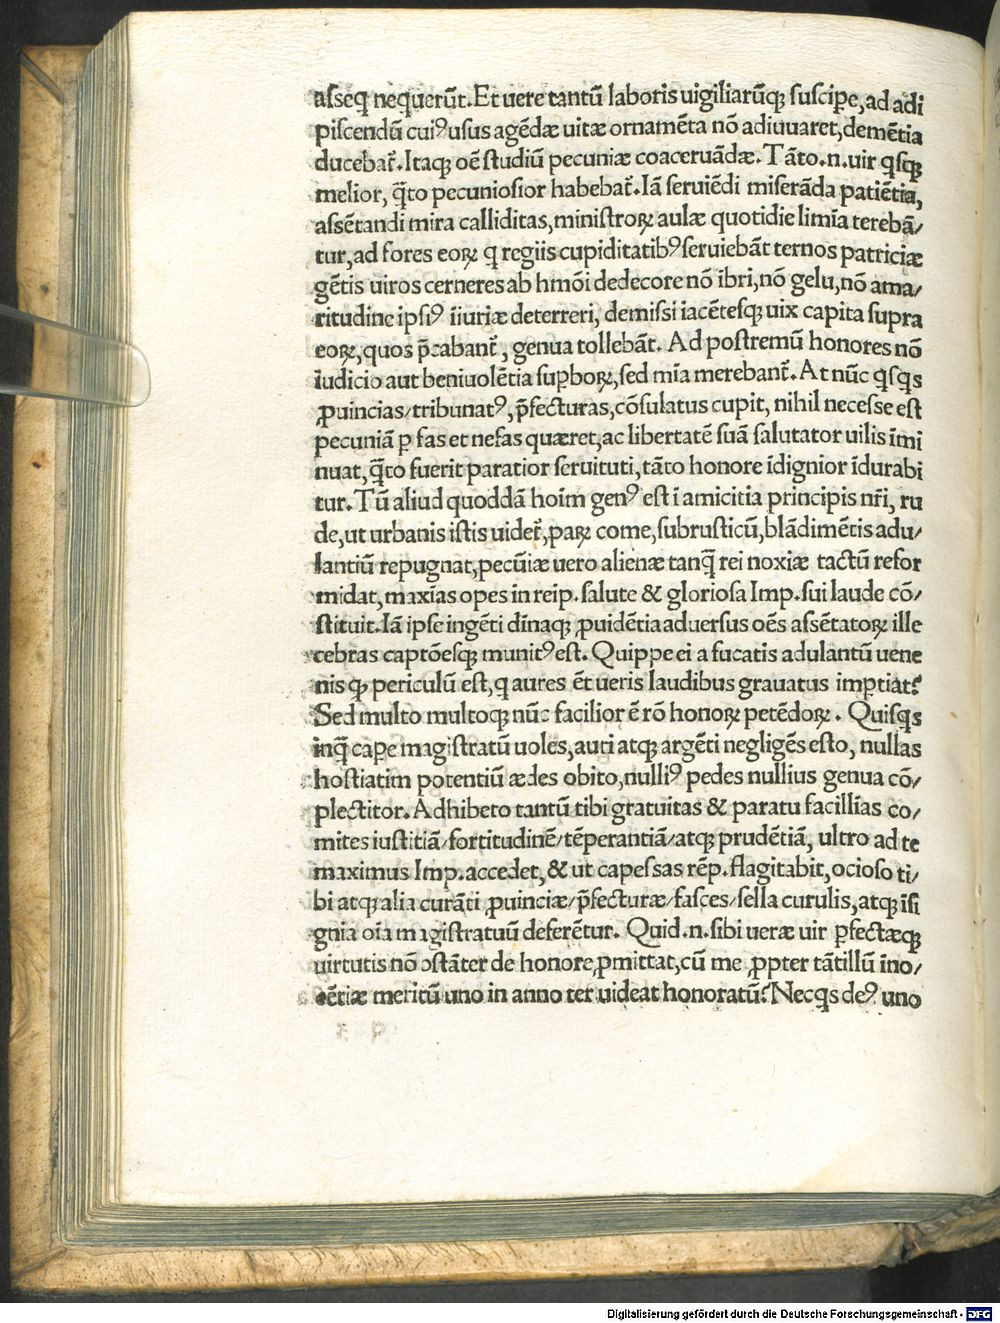 asseq̃ nequerũt. Et uere tantũ laboris uigiliarũq; suscipe, ad adi
piscendũ cuiꝰ usus agẽdæ uitæ ornamẽta nõ adiuuaret, demẽtia
ducebat̃. Itaq; oẽ studiũ pecuniæ coaceruãdæ. Tãto .n. uir q̃sq;
melior, q̃̃to pecuniosior habebat̃. Iã seruiẽdi miserãda patiẽtia,
assẽtandi mira calliditas, ministroꝝ aulæ quotidie limĩa terebã/
tur, ad fores eoꝝ q̃ regiis cupiditatibꝰ seruiebãt ternos patriciæ
gẽtis uiros cerneres ab hmõi dedecore nõ ĩbri, nõ gelu, nõ ama/
ritudine ipsiꝰ ĩiuriæ deterreri, demissi iacẽtesq; uix capita supra
eoꝝ, quos p̃cabant̃, genua tollebãt. Ad postremũ honores nõ
iudicio aut beniuolẽtia supboꝝ, sed mĩa merebant̃. At nũc q̃sq̃s
ꝓuincias/ tribunatꝰ, p̃fecturas, cõsulatus cupit, nihil necesse est
pecuniã p fas et nefas quæret, ac libertatẽ suã salutator uilis ĩmi
nuat, q̃̃to fuerit paratior seruituti, tãto honore ĩdignior ĩdurabi
tur. Tũ aliud quoddã hoĩm genꝰ est ĩ amicitia principis nr̃i, ru
de, ut urbanis istis uidet̃, paꝝ come, subrusticũ, blãdimẽtis adu/
lantiũ repugnat, pecũiæ uero alienæ tanq̃̃ rei noxiæ tactũ refor
midat, maxĩas opes in reip. salute & gloriosa Imp. sui laude cõ/
stituit. Iã ipse ingẽti dĩnaq; ꝓuidẽtia aduersus oẽs assẽtatoꝝ ille
cebras captõesq; munitꝰ est. Quippe ei a fucatis adulantũ uene
nis qď periculũ est, q aures ẽt ueris laudibus grauatus imptiat?
Sed multo multoq; nũc facilior ẽ rõ honoꝝ petẽdoꝝ. Quisq̃s
inq̃̃ cape magistratũ uoles, auri atq; argẽti negligẽs esto, nullas
hostiatim potentiũ ædes obito, nulliꝰ pedes nullius genua cõ/
plectitor. Adhibeto tantũ tibi gratuitas & paratu facillĩas co/
mites iustitiã/ fortitudinẽ/ tẽperantiã/ atq; prudẽtiã, ultro ad te
maximus Imp. accedet, & ut capessas rẽp. flagitabit, ocioso ti/
bi atq; alia curãti ꝓuinciæ/ p̃fecturæ/ fasces/ sella curulis, atq; ĩsi
gnia oĩa magistratuũ deferẽtur. Quid .n. sibi ueræ uir pfectæq;
uirtutis nõ ↄstãter de honore ꝓmittat, cũ me ꝓpter tãtillũ ĩno/
cẽtiæ meritũ uno in anno ter uideat honoratũ? Nec q̃s deꝰ uno
Digitalisierung gefördert durch die Deutsche Forschungsgemeinschaft - DFG